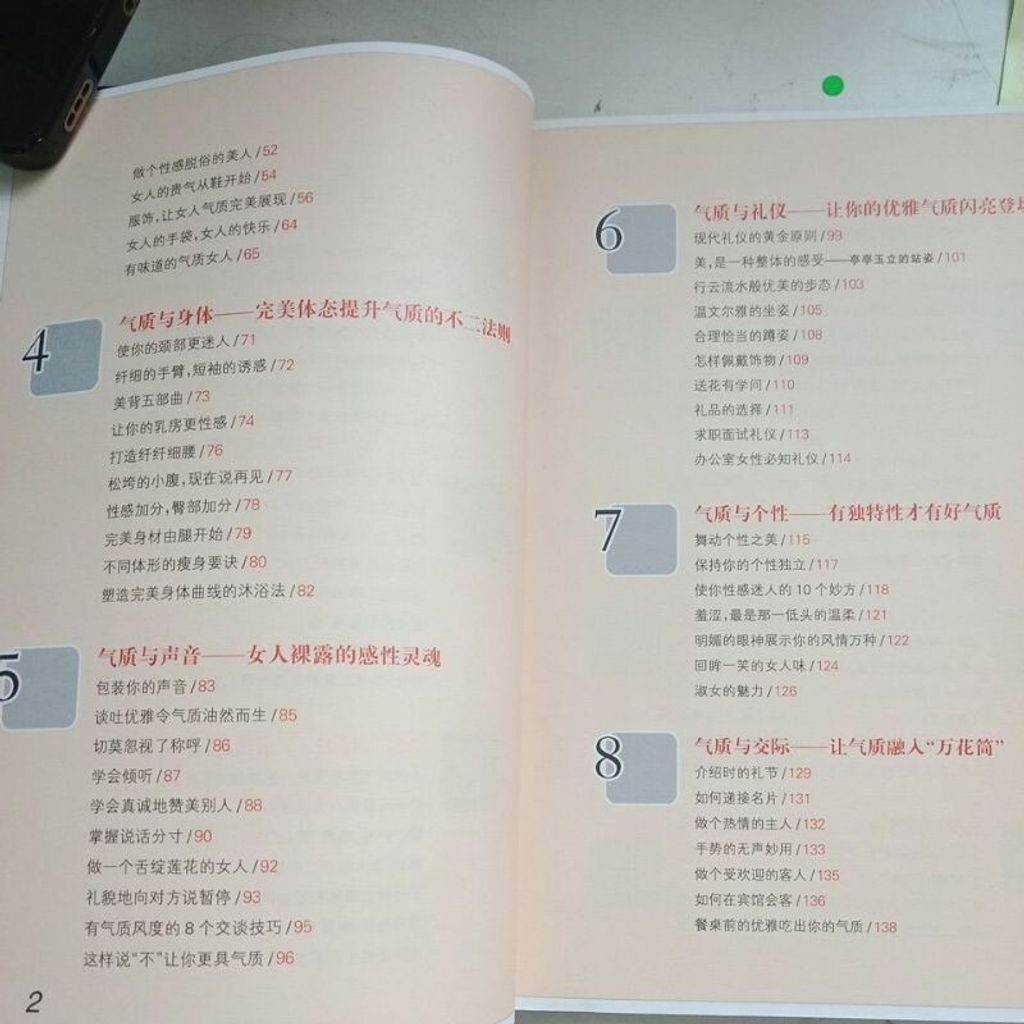 做个性感脱俗的美人/52
女人的贵气从鞋开始/54
服饰,让女人气质完美展现/56
女人的手袋,女人的快乐/64
有味道的气质女人/65
4
气质与身体——完美体态提升气质的不二法则
使你的颈部更迷人/71
纤细的手臂,短袖的诱惑/72
美背五部曲/73
让你的乳房更性感/74
打造纤纤细腰/76
松垮的小腹,现在说再见/77
性感加分,臀部加分/78
完美身材由腿开始/79
不同体形的瘦身要诀/80
塑造完美身体曲线的沐浴法/82
5
气质与声音——女人裸露的感性灵魂
包装你的声音/83
谈吐优雅令气质油然而生/85
切莫忽视了称呼/86
学会倾听/87
学会真诚地赞美别人/88
掌握说话分寸/90
做一个舌绽莲花的女人/92
礼貌地向对方说暂停/93
有气质风度的8个交谈技巧/95
这样说“不”让你更具气质/96
2
6
气质与礼仪——让你的优雅气质闪亮登场
现代礼仪的黄金原则/99
美,是一种整体的感受——亭亭玉立的站姿/101
行云流水般优美的步态/103
温文尔雅的坐姿/105
合理恰当的蹲姿/108
怎样佩戴饰物/109
送花有学问/110
礼品的选择/111
求职面试礼仪/113
办公室女性必知礼仪/114
7
气质与个性——有独特性才有好气质
舞动个性之美/115
保持你的个性独立/117
使你性感迷人的10个妙方/118
羞涩,最是那一低头的温柔/121
明媚的眼神展示你的风情万种/122
回眸一笑的女人味/124
淑女的魅力/126
8
气质与交际——让气质融入“万花筒”
介绍时的礼节/129
如何递接名片/131
做个热情的主人/132
手势的无声妙用/133
做个受欢迎的客人/135
如何在宾馆会客/136
餐桌前的优雅吃出你的气质/138